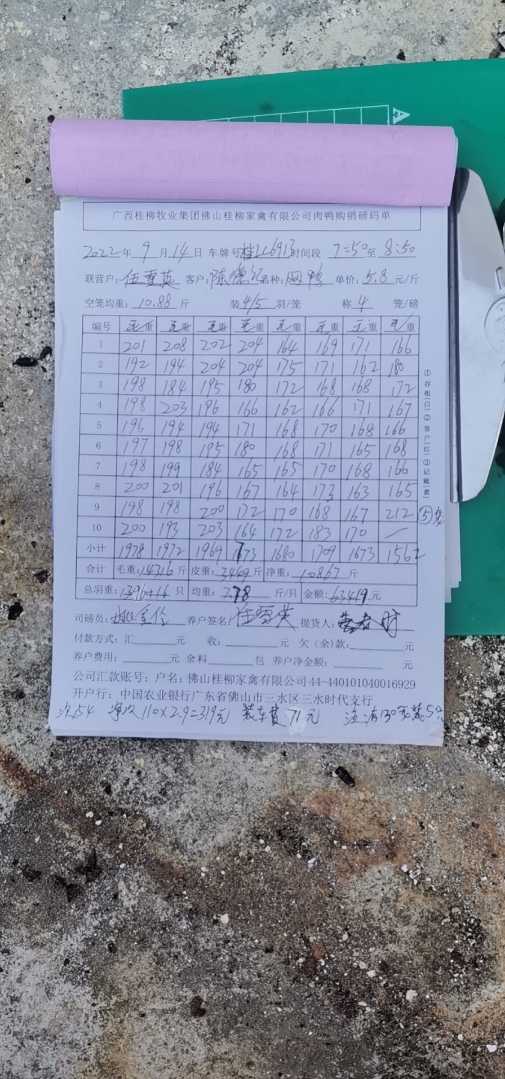 广西桂柳牧业集团佛山桂柳家禽有限公司肉鸭购销磅码单
2022年 9 月 14 日 车牌号 时间段 7:50 至 8:50
联营户: 客户: 品种: 单价: 5.8 元/斤
空笼均重: 10.88 斤 装 4/5 羽/笼 称 4 笼/磅
编号 毛重 毛重 毛重 毛重 毛重 毛重 毛重 毛重
1 201 208 202 204 164 169 171 166
2 192 194 204 204 175 171 162 180
3 198 184 195 180 172 168 168 172
4 198 203 196 166 162 166 171 167
5 196 194 194 171 168 170 168 166
6 197 198 195 180 168 171 165 168
7 198 199 184 165 165 170 168 166
8 200 201 196 167 164 173 163 165
9 198 198 200 172 170 168 167 212 ⑤
10 200 193 203 164 172 183 170 —
小计 1978 1972 1969 1773 1680 1709 1673 1562
合计 毛重: 14316 斤 皮重: 3469 斤 净重: 10867 斤
总羽重: 只 均重: 斤/只 金额: 63419 元
司磅员: 养户签名: 提货人:
付款方式: 汇 元 收: 元 欠(余)款: 元
养户费用: 元 余料 包 养户净金额: 元
公司汇款账号: 户名: 佛山桂柳家禽有限公司44-440101040016929
开户行: 中国农业银行广东省佛山市三水区三水时代支行
次54 110×2.9=319元 装车费 71元
①存根(白)②客户(红)③记账(黄)